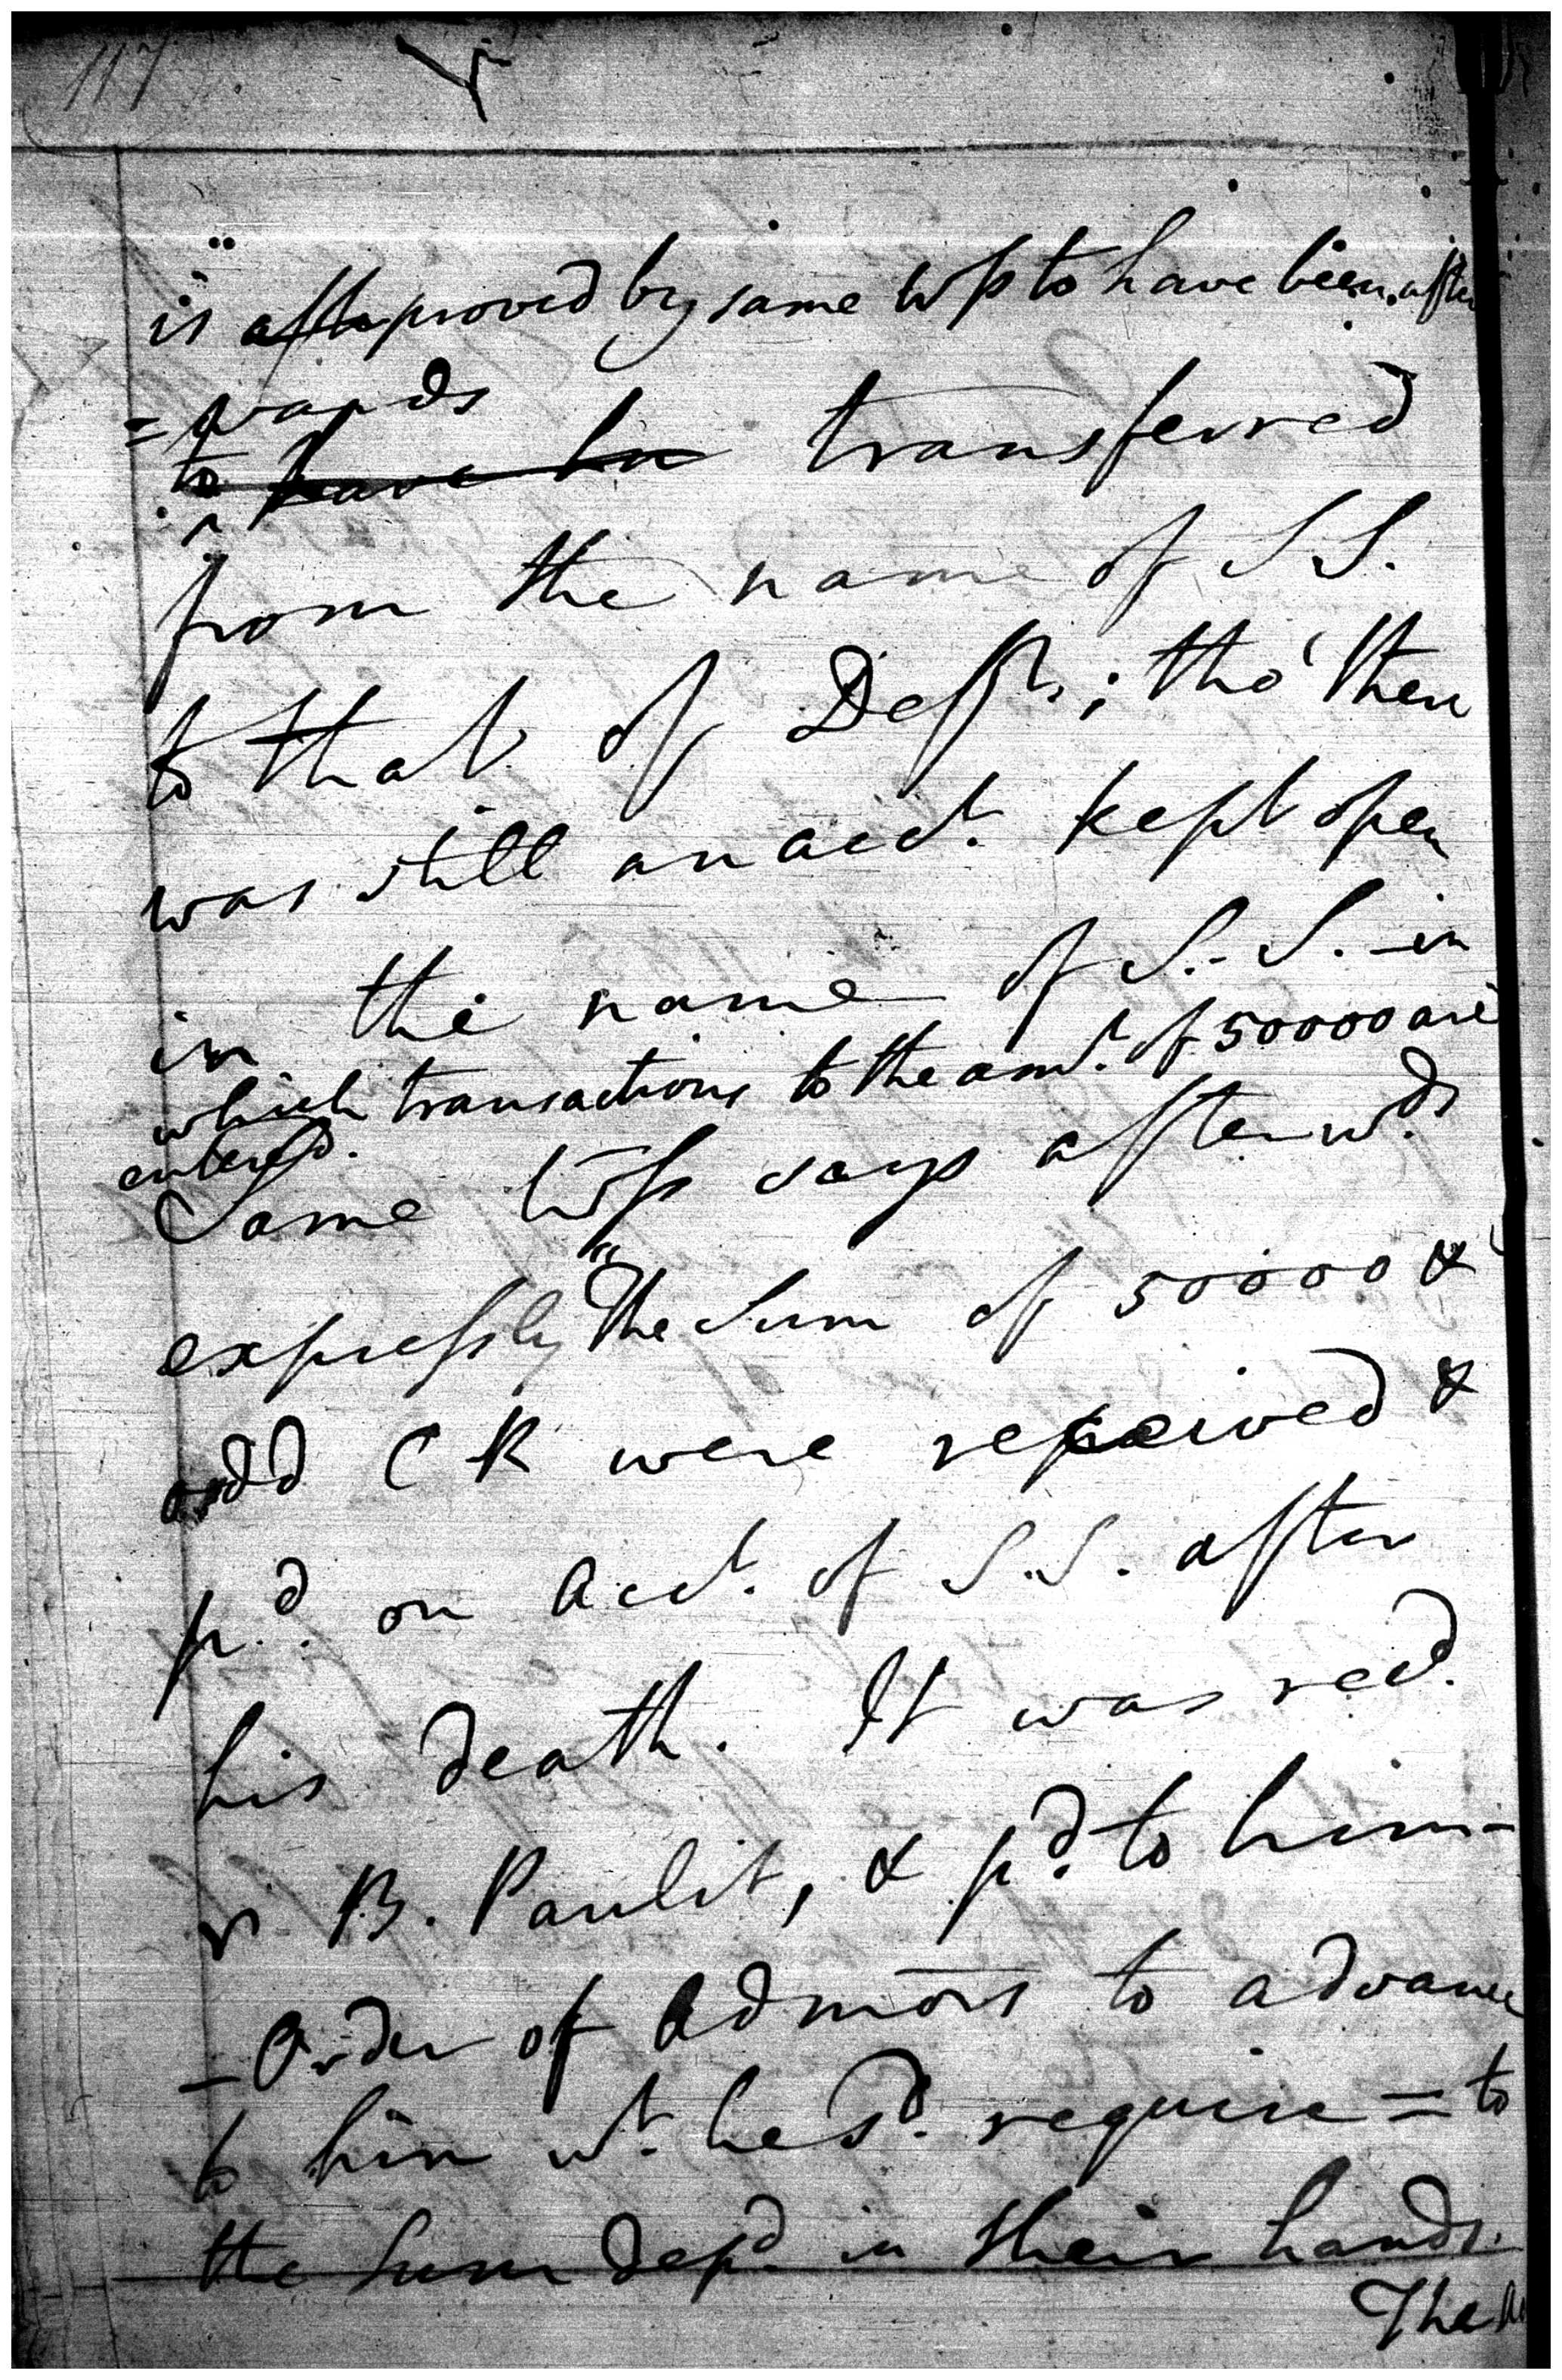 117
is proved by same Wss to have been after
=wards
to have bn transferred
from the name of S S.
to that of Defts; tho' there
was still an acct. kept open
in the name of S. S. in
which transactions to the amt. of 50000 are
entered.
Same Wss says afterwds
expressly "The Sum of 50000 &
odd C R were received &
pd. on Acct. of S.S. after
his death. It was recd.
B. Paulit, & pd. to him
- Order of Admors to advance
to him wt. he sd. require = to
the Sum depd. in their hands.
The